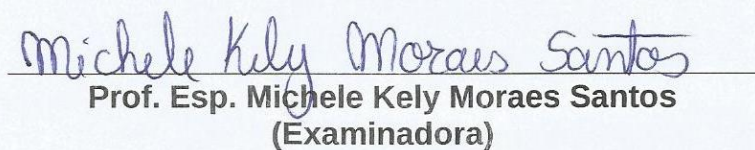 Michele Kely Moraes Santos
Prof. Esp. Michele Kely Moraes Santos
(Examinadora)